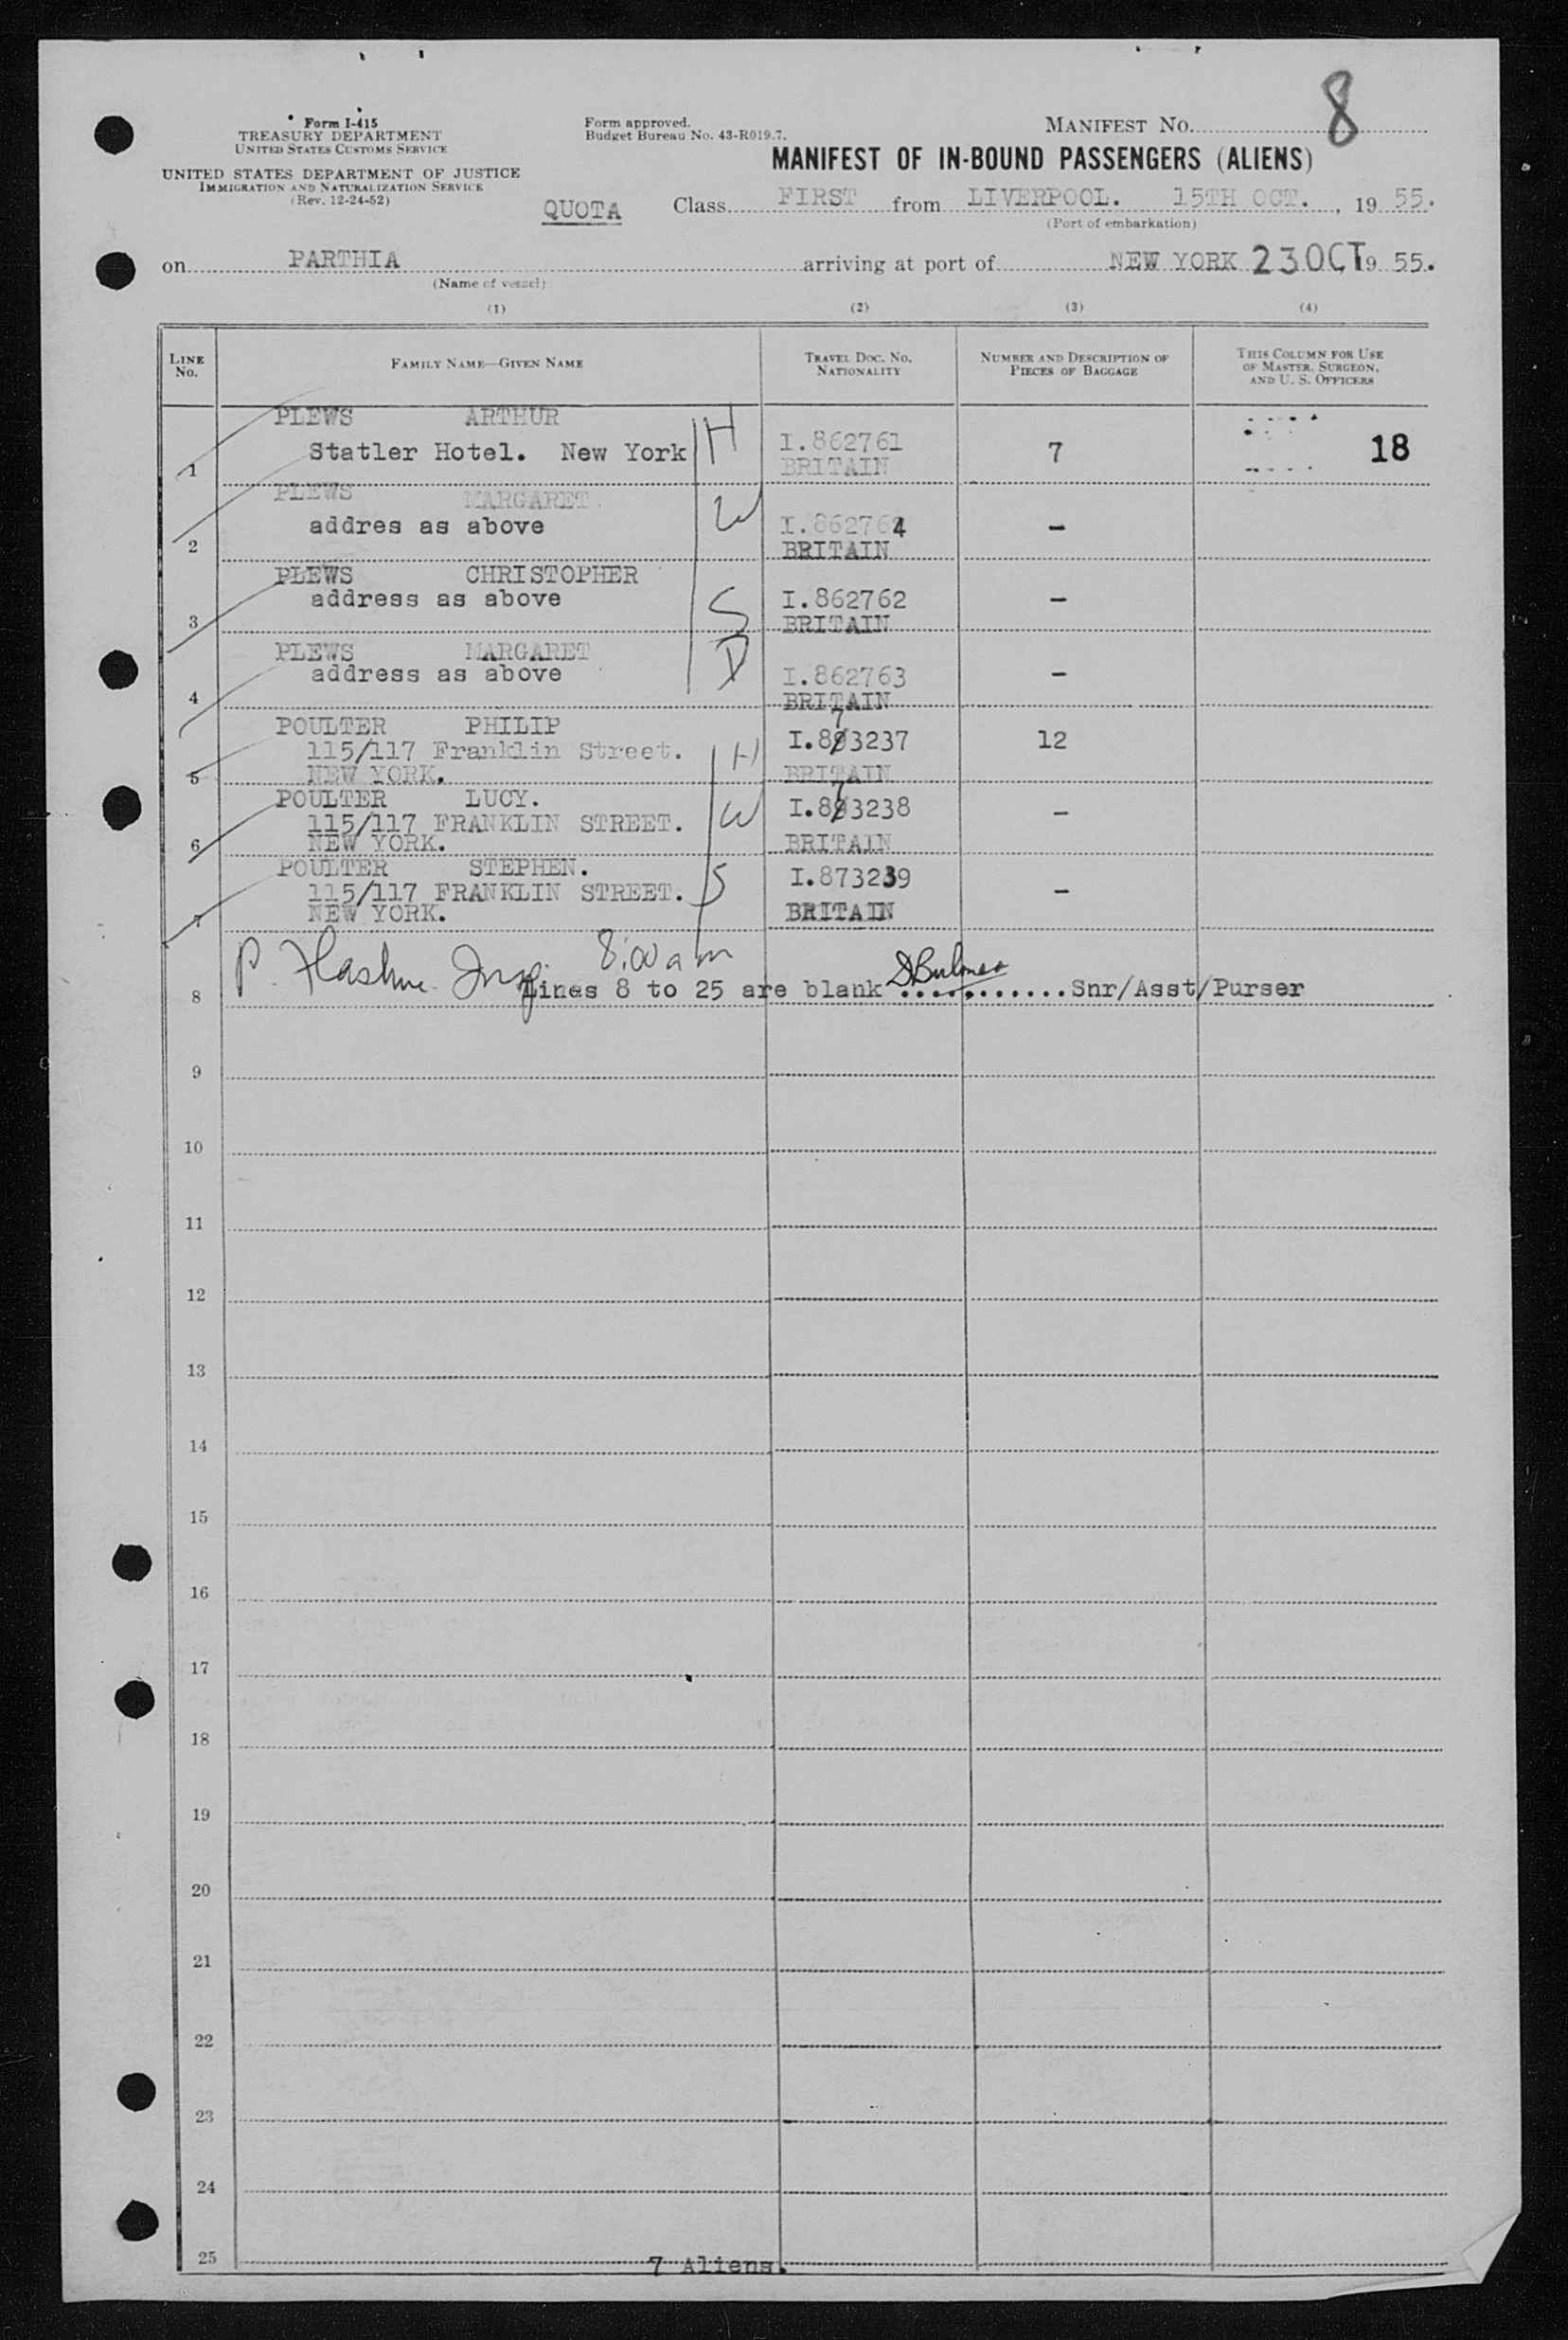 Form I-415
TREASURY DEPARTMENT
UNITED STATES CUSTOMS SERVICE
UNITED STATES DEPARTMENT OF JUSTICE
IMMIGRATION AND NATURALIZATION SERVICE
(Rev. 12-24-52)
Form approved.
Budget Bureau No. 43-R019.7.
MANIFEST No. 8
MANIFEST OF IN-BOUND PASSENGERS (ALIENS)
QUOTA Class FIRST from LIVERPOOL. 15TH OCT., 19 55.
(Port of embarkation)
on PARTHIA arriving at port of NEW YORK 23 OCT 19 55.
(Name of vessel)
(1) (2) (3) (4)
LINE No. FAMILY NAME—GIVEN NAME TRAVEL DOC. NO. NATIONALITY NUMBER AND DESCRIPTION OF PIECES OF BAGGAGE THIS COLUMN FOR USE OF MASTER, SURGEON, AND U. S. OFFICERS
PLEWS ARTHUR
1 Statler Hotel. New York H I.862761 BRITAIN 7 18
PLEWS MARGARET.
2 addres as above W I.862764 BRITAIN –
PLEWS CHRISTOPHER
3 address as above S I.862762 BRITAIN –
PLEWS MARGARET
4 address as above D I.862763 BRITAIN –
POULTER PHILIP
115/117 Franklin Street. H I.873237 12
5 NEW YORK. BRITAIN
POULTER LUCY.
115/117 FRANKLIN STREET. W I.873238 –
6 NEW YORK. BRITAIN
POULTER STEPHEN.
115/117 FRANKLIN STREET. S I.873239 –
7 NEW YORK. BRITAIN
P. 8:00 am
8 Lines 8 to 25 are blank DBulmer ............Snr/Asst/Purser
9
10
11
12
13
14
15
16
17
18
19
20
21
22
23
24
25 7 Aliens.